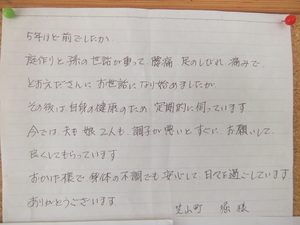 5年ほど前でしたか
庭作りと孫の世話が重って腰痛、足のしびれ、痛みで
とおえださんにお世話になり始めましたが
その後は自身の健康のため、定期的に伺っています
今では、夫も娘2人も、調子が悪いとすぐに、お願いして
良くしてもらっています
おかげ様で身体の不調でも安心して、日々を過ごしています
ありがとうございます